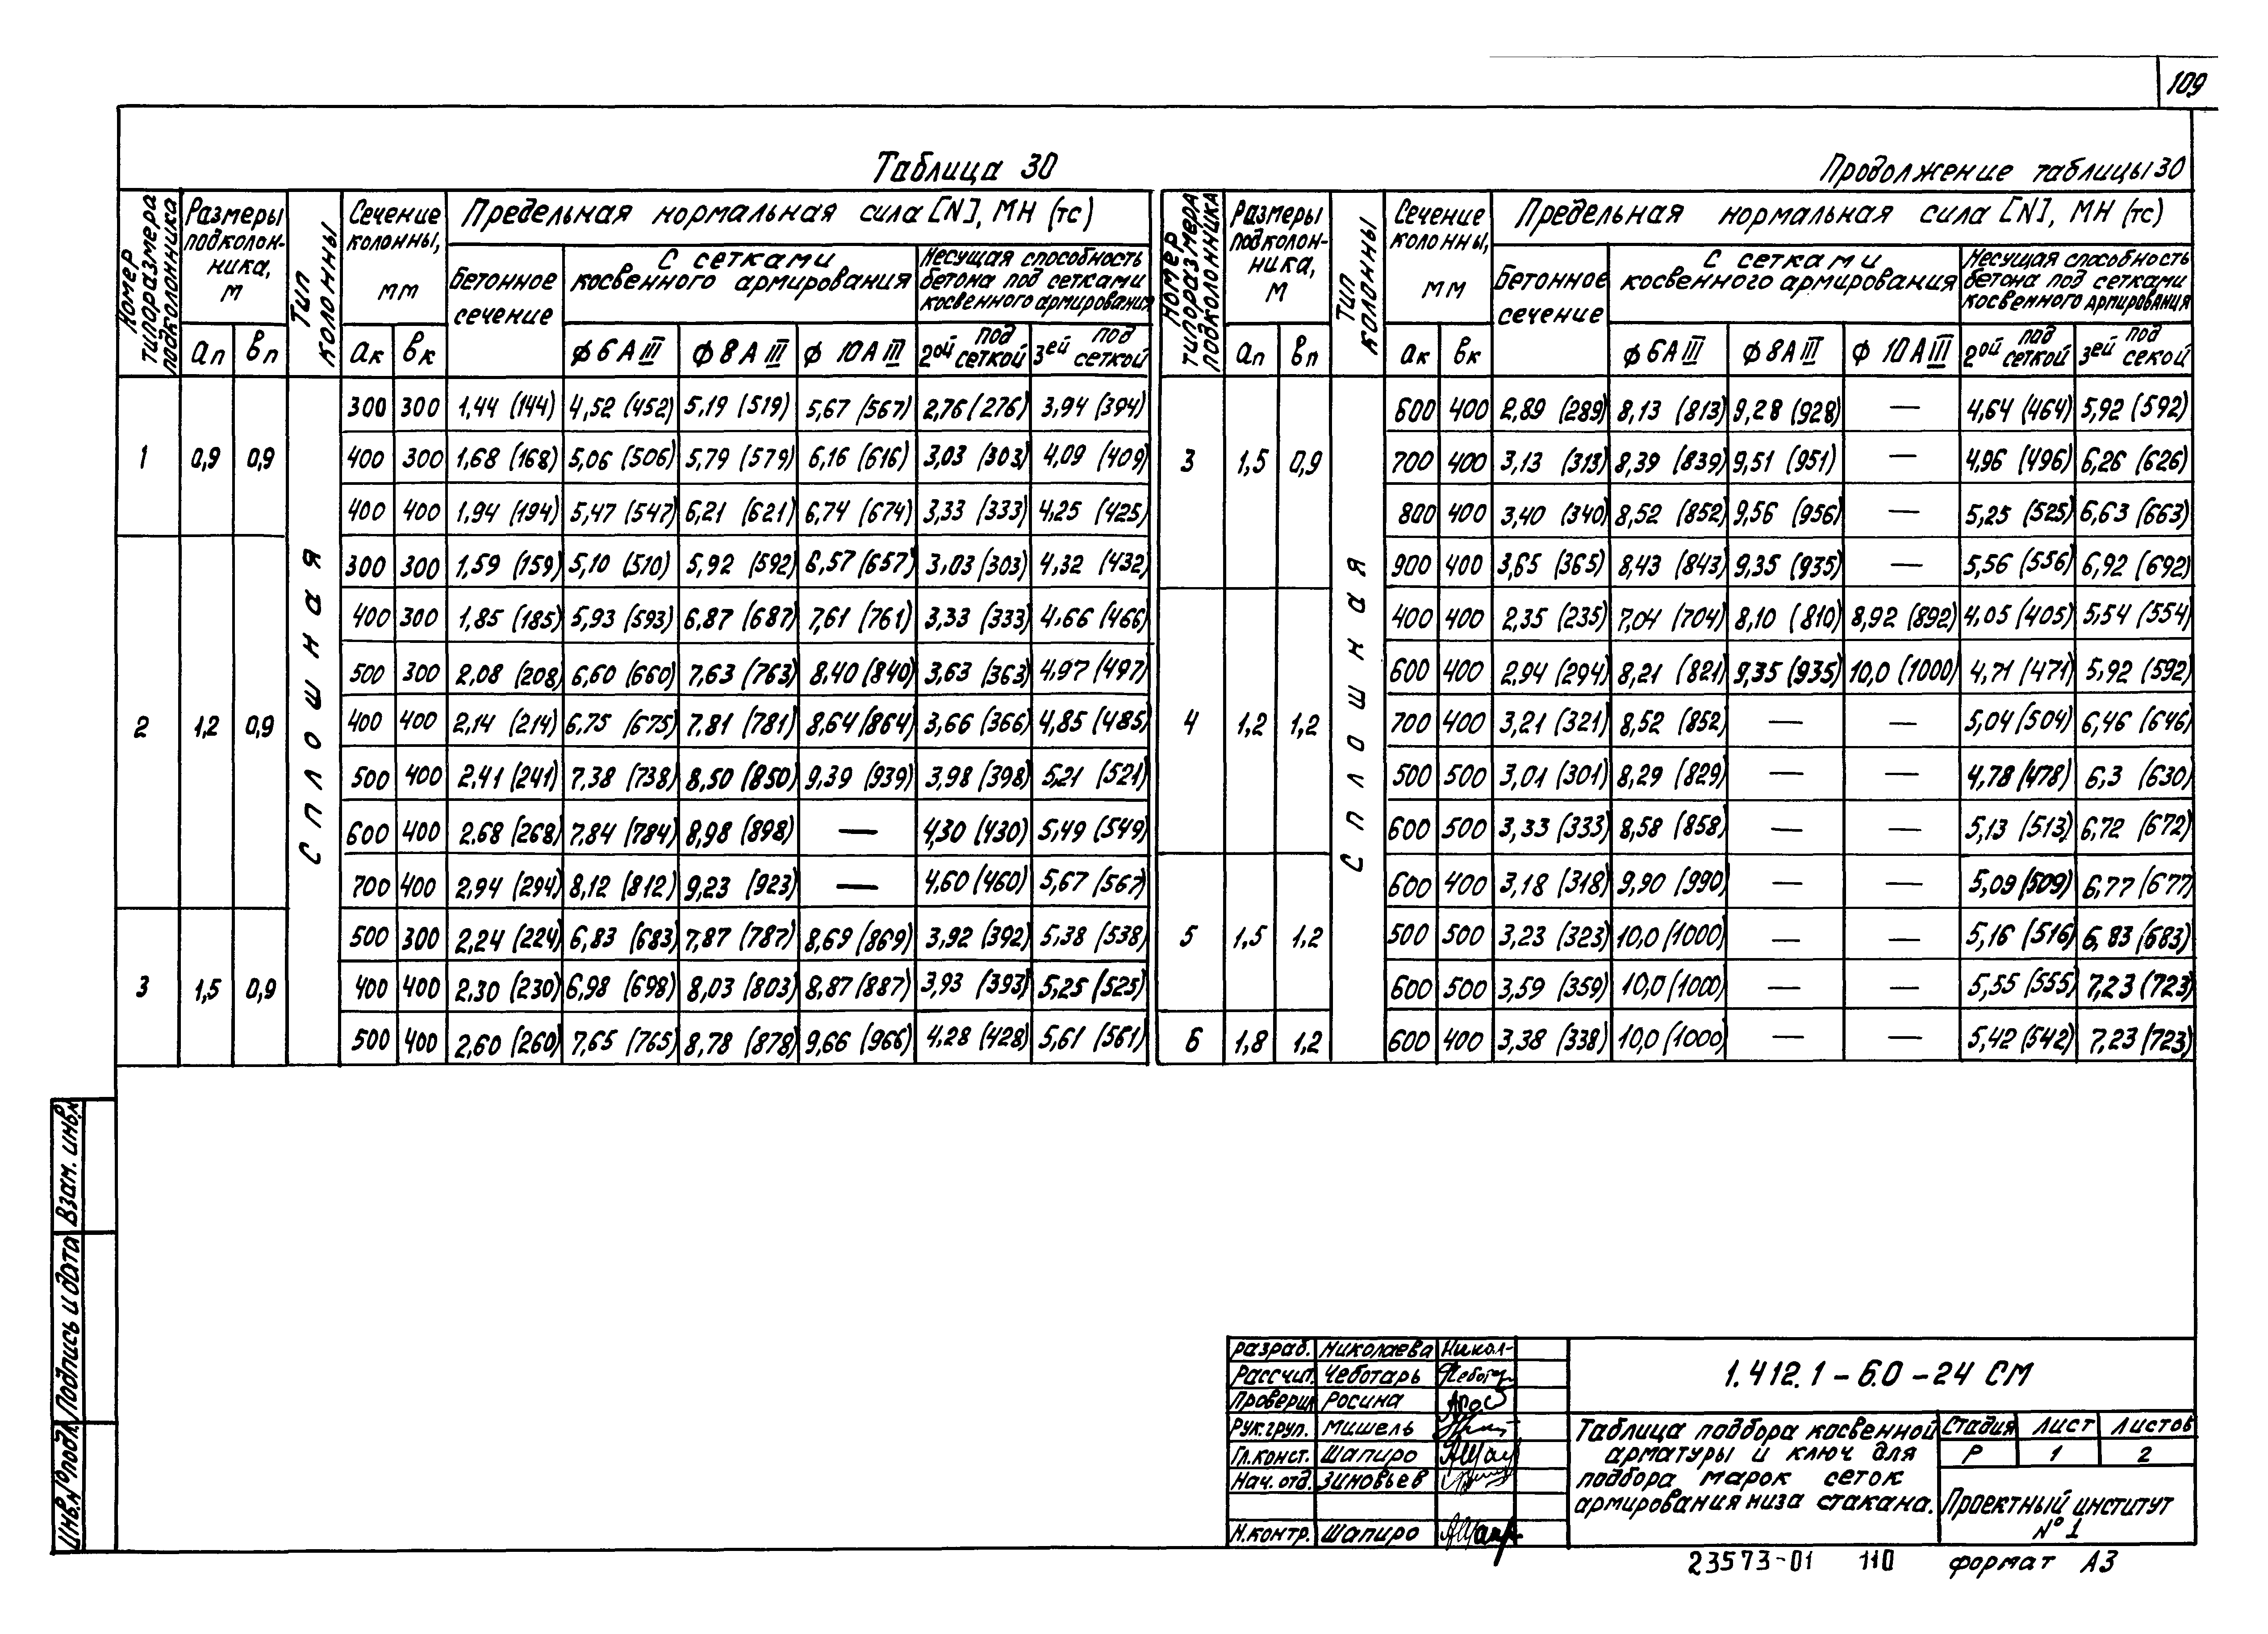 109
Таблица 30
Продолжение таблицы 30
Номер типоразмера подколонника
Размеры подколон-ника, м
Тип колонны
Сечение колонны, мм
Предельная нормальная сила [N], МН (тс)
Бетонное сечение
С сетками косвенного армирования
Несущая способность бетона под сетками косвенного армирования
aп вп aк вк ф 6 А III ф 8 А III ф 10 А III 2ой под сеткой 3ей под сеткой
Сплошная
1 0,9 0,9
300 300 1,44 (144) 4,52 (452) 5,19 (519) 5,67 (567) 2,76 (276) 3,94 (394)
400 300 1,68 (168) 5,06 (506) 5,79 (579) 6,16 (616) 3,03 (303) 4,09 (409)
400 400 1,94 (194) 5,47 (547) 6,21 (621) 6,74 (674) 3,33 (333) 4,25 (425)
2 1,2 0,9
300 300 1,59 (159) 5,10 (510) 5,92 (592) 6,57 (657) 3,03 (303) 4,32 (432)
400 300 1,85 (185) 5,93 (593) 6,87 (687) 7,61 (761) 3,33 (333) 4,66 (466)
500 300 2,08 (208) 6,60 (660) 7,63 (763) 8,40 (840) 3,63 (363) 4,97 (497)
400 400 2,14 (214) 6,75 (675) 7,81 (781) 8,64 (864) 3,66 (366) 4,85 (485)
500 400 2,41 (241) 7,38 (738) 8,50 (850) 9,39 (939) 3,98 (398) 5,21 (521)
600 400 2,68 (268) 7,84 (784) 8,98 (898) — 4,30 (430) 5,49 (549)
700 400 2,94 (294) 8,12 (812) 9,23 (923) — 4,60 (460) 5,67 (567)
3 1,5 0,9
500 300 2,24 (224) 6,83 (683) 7,87 (787) 8,69 (869) 3,92 (392) 5,38 (538)
400 400 2,30 (230) 6,98 (698) 8,03 (803) 8,87 (887) 3,93 (393) 5,25 (525)
500 400 2,60 (260) 7,65 (765) 8,78 (878) 9,66 (966) 4,28 (428) 5,61 (561)
Номер типоразмера подколонника
Размеры подколон-ника, м
Тип колонны
Сечение колонны, мм
Предельная нормальная сила [N], МН (тс)
Бетонное сечение
С сетками косвенного армирования
Несущая способность бетона под сетками косвенного армирования
aп вп aк вк ф 6 А III ф 8 А III ф 10 А III 2ой под сеткой 3ей под секой
Сплошная
3 1,5 0,9
600 400 2,89 (289) 8,13 (813) 9,28 (928) — 4,64 (464) 5,92 (592)
700 400 3,13 (313) 8,39 (839) 9,51 (951) — 4,96 (496) 6,26 (626)
800 400 3,40 (340) 8,52 (852) 9,56 (956) — 5,25 (525) 6,63 (663)
900 400 3,65 (365) 8,43 (843) 9,35 (935) — 5,56 (556) 6,92 (692)
4 1,2 1,2
400 400 2,35 (235) 7,04 (704) 8,10 (810) 8,92 (892) 4,05 (405) 5,54 (554)
600 400 2,94 (294) 8,21 (821) 9,35 (935) 10,0 (1000) 4,71 (471) 5,92 (592)
700 400 3,21 (321) 8,52 (852) — — 5,04 (504) 6,46 (646)
500 500 3,01 (301) 8,29 (829) — — 4,78 (478) 6,3 (630)
600 500 3,33 (333) 8,58 (858) — — 5,13 (513) 6,72 (672)
5 1,5 1,2
600 400 3,18 (318) 9,90 (990) — — 5,09 (509) 6,77 (677)
500 500 3,23 (323) 10,0 (1000) — — 5,16 (516) 6,83 (683)
600 500 3,59 (359) 10,0 (1000) — — 5,55 (555) 7,23 (723)
6 1,8 1,2
600 400 3,38 (338) 10,0 (1000) — — 5,42 (542) 7,23 (723)
Взам. инв.№
Подпись и дата
Инв.№ подл.
Разраб. Николаева Никол-
Рассчит. Чеботарь
Проверил Росина
Рук.груп. Мишель
Гл.конст. Шапиро
Нач. отд. Зиновьев
Н.контр. Шапиро
1.412.1-6.0-24 СМ
Таблица подбора косвенной арматуры и ключ для подбора марок сеток армирования низа стакана.
Стадия Лист Листов
Р 1 2
Проектный институт №1
23573-01 110 формат А3